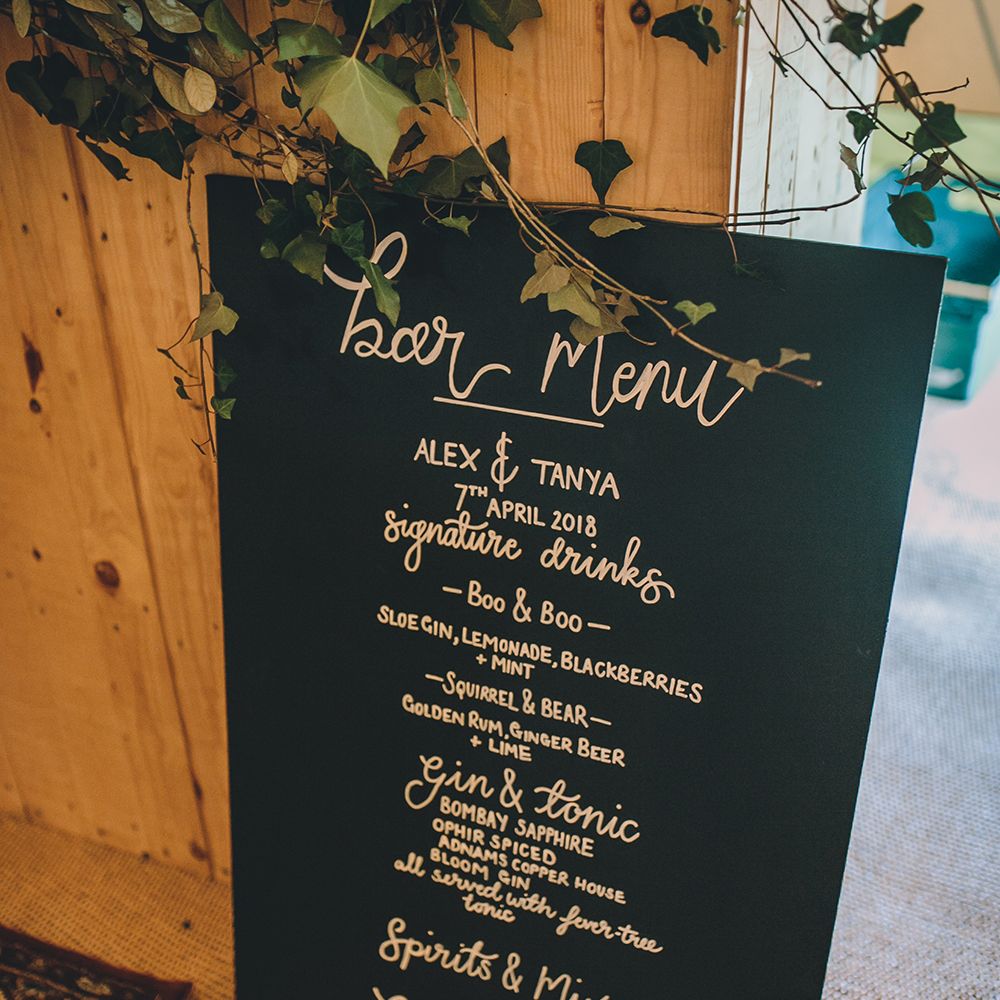 bar Menu
ALEX & TANYA
7TH APRIL 2018
signature drinks
— Boo & Boo —
SLOE GIN, LEMONADE, BLACKBERRIES
+ MINT
— SQUIRREL & BEAR —
GOLDEN RUM, GINGER BEER
+ LIME
Gin & tonic
BOMBAY SAPPHIRE
OPHIR SPICED
ADNAMS COPPER HOUSE
BLOOM GIN
all served with fever-tree
tonic
Spirits &